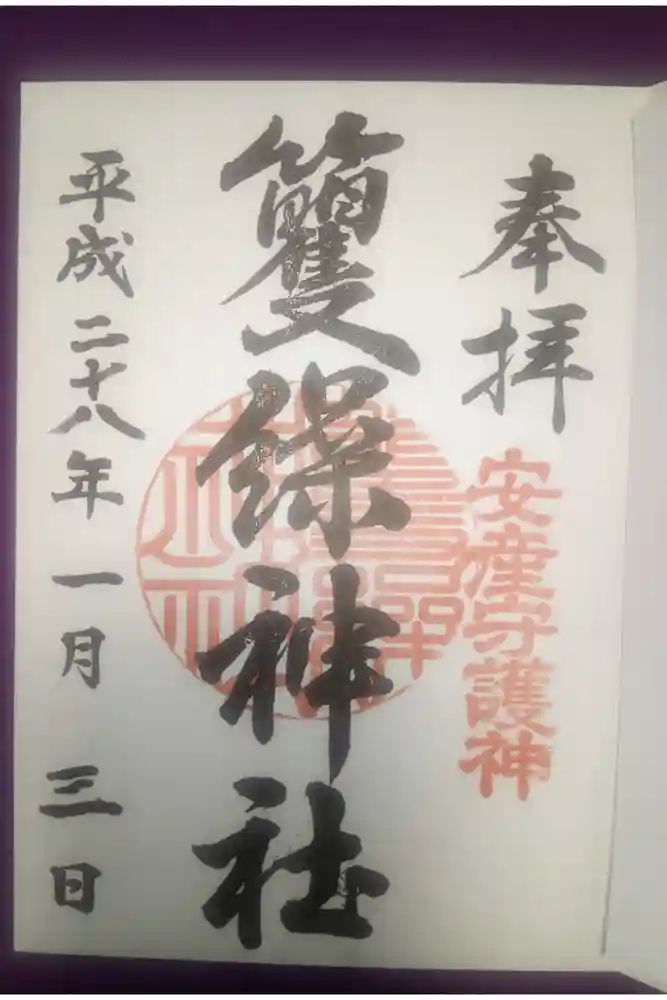 奉拝
安産守護神
籰繰神社
平成二十八年一月三日